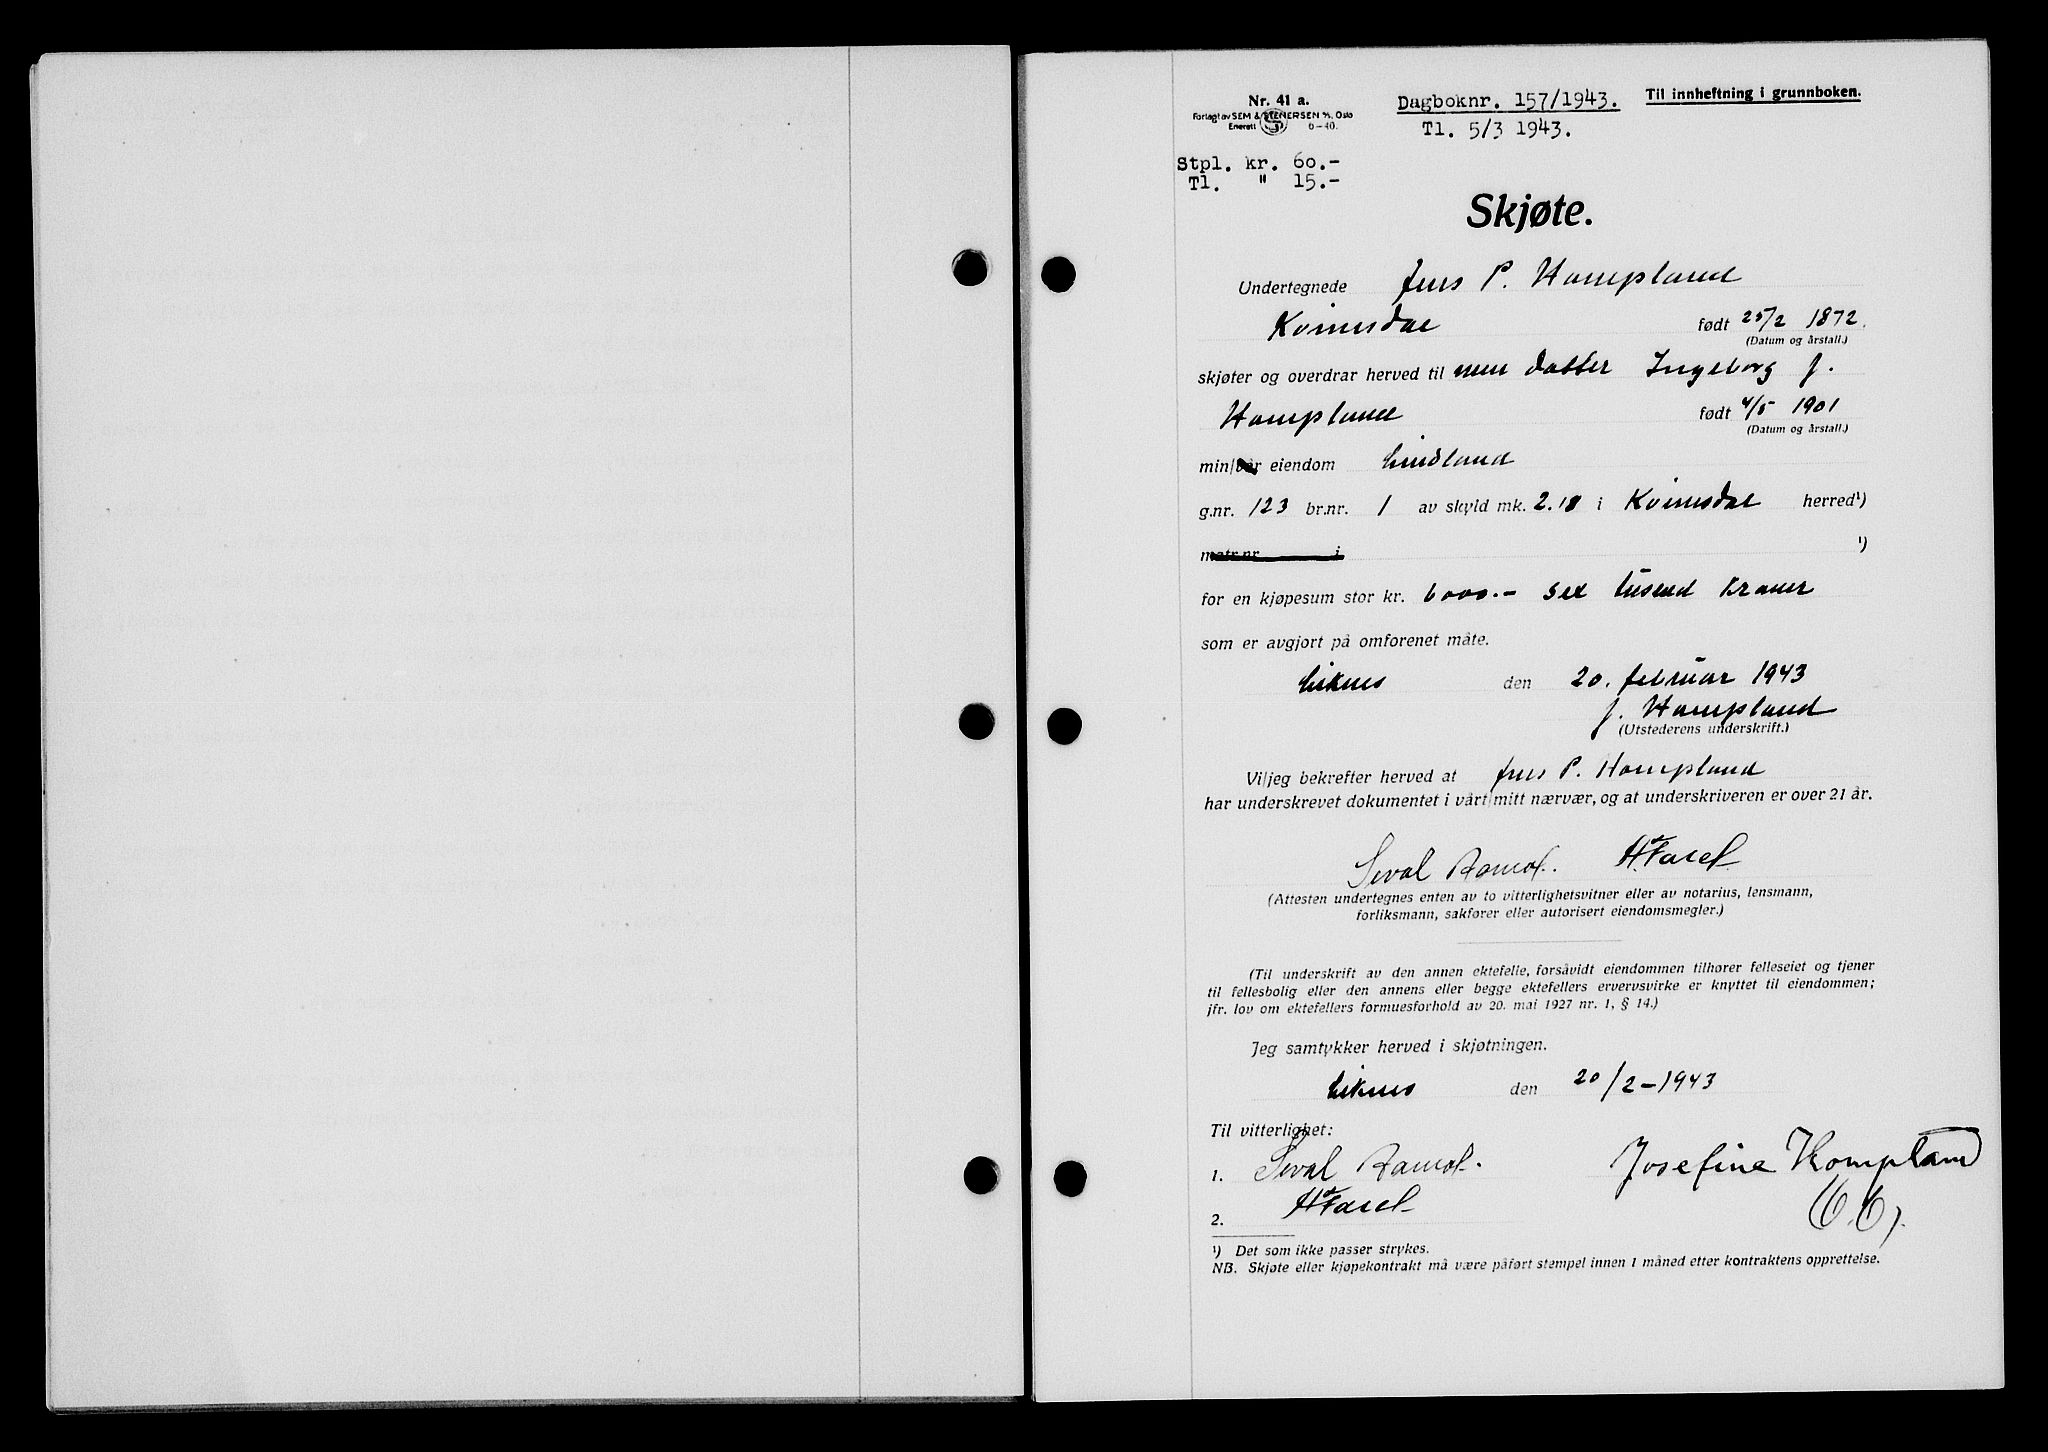 Nr. 41 a.
Forlagt av SEM & STENERSEN A/S, Oslo
Enerett S 6-40.
Dagboknr. 157/1943.
Tl. 5/3 1943.
Til innheftning i grunnboken.
Stpl. kr. 60.-
Tl. " 15.-
Skjøte.
Undertegnede Jens P. Hompland
Kvinesdal født 25/2 1872.
(Datum og årstall.)
skjøter og overdrar herved til min datter Ingeborg J.
Hompland født 4/5 1901
(Datum og årstall.)
min/vår eiendom Lindland
g.nr. 123 br.nr. 1 av skyld mk. 2.18 i Kvinesdal herred¹)
matr.nr. i ¹)
for en kjøpesum stor kr. 6000.- sex tusend kroner
som er avgjort på omforenet måte.
Liknes den 20. februar 1943
J. Hompland
(Utstederens underskrift.)
Vi/jeg bekrefter herved at Jens P. Hompland
har underskrevet dokumentet i vårt/mitt nærvær, og at underskriveren er over 21 år.
(Attesten undertegnes enten av to vitterlighetsvitner eller av notarius, lensmann,
forliksmann, sakfører eller autorisert eiendomsmegler.)
(Til underskrift av den annen ektefelle, forsåvidt eiendommen tilhører felleseiet og tjener
til fellesbolig eller den annens eller begge ektefellers ervervsvirke er knyttet til eiendommen;
jfr. lov om ektefellers formuesforhold av 20. mai 1927 nr. 1, § 14.)
Jeg samtykker herved i skjøtningen.
Liknes den 20/2-1943
Til vitterlighet:
1. Josefine Hompland
2.
¹) Det som ikke passer strykes.
NB. Skjøte eller kjøpekontrakt må være påført stempel innen 1 måned etter kontraktens opprettelse.